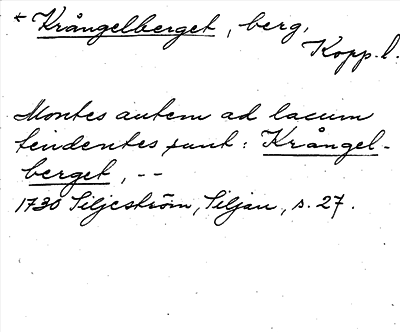 * Krångelberget, berg,
Kopp. l.
Montes autem ad lacum
tendentes sunt: Krångel-
berget, --
1730 Siljeström, Siljan, s. 27.